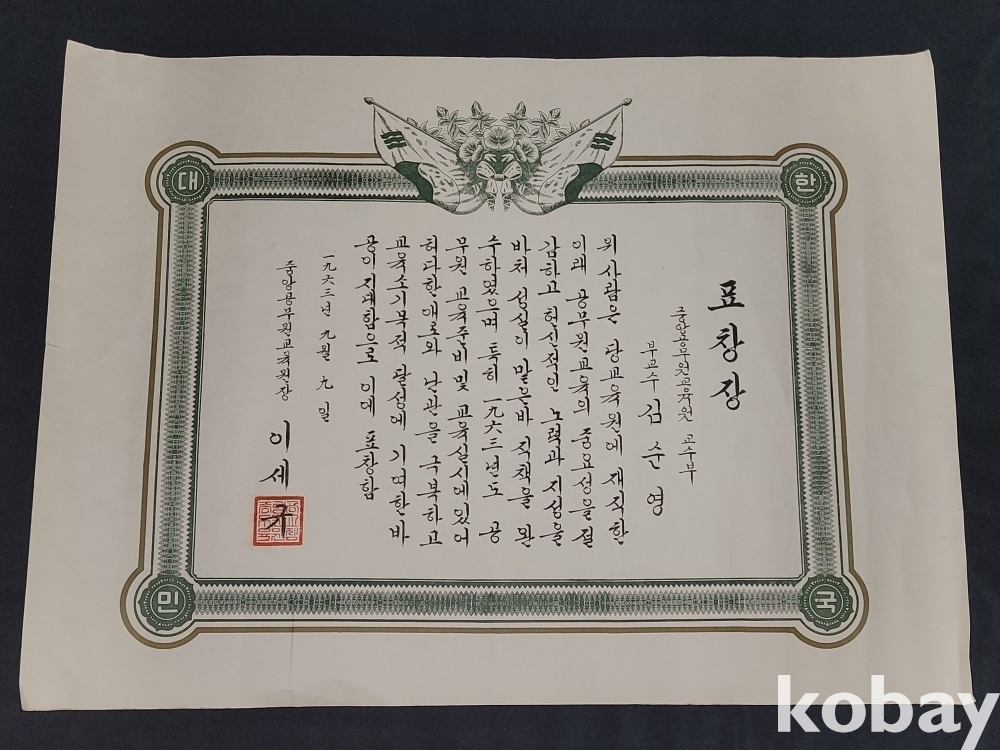 대한민국
표창장
중앙공무원교육원 교수부
부교수 김순영
위 사람은 당교육원에 재직한
이래 공무원교육의 중요성을 절
감하고 헌신적인 노력과 지성을
바쳐 성실이 맡은바 직책을 완
수하였으며 특히 一九六三년도 공
무원 교육준비 및 교육실시에 있어
허다한 애로와 난관을 극복하고
교육소기목적 달성에 기여한바
공이 지대함으로 이에 표창함
一九六三년 九월 九일
중앙공무원교육원장 이세규
kobay